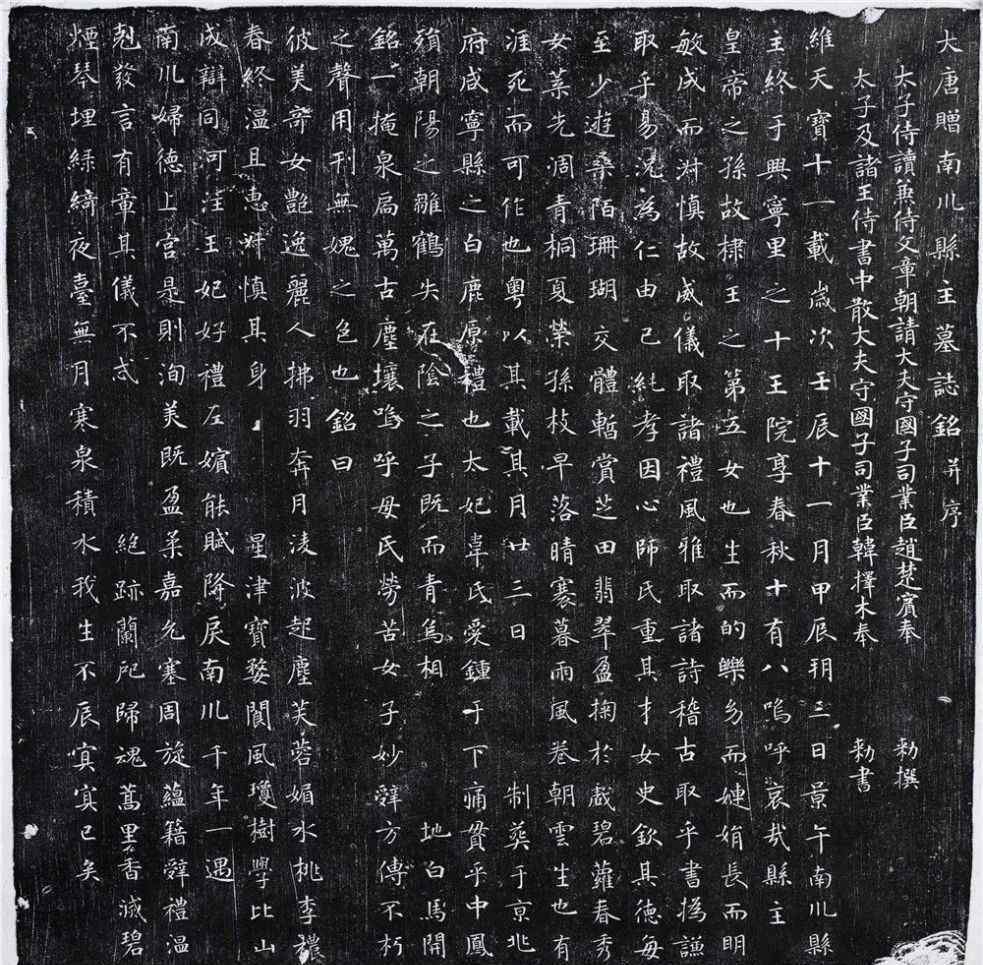 大唐贈南川縣主墓誌銘 并序
太子侍讀兼侍文章朝請大夫守國子司業臣趙楚賓奉 勑撰
太子及諸王侍書中散大夫守國子司業臣韓擇木奉 勑書
維天寶十一載歲次壬辰十一月甲辰朔三日景午南川縣
主終于興寧里之十王院享春秋十有八嗚呼哀哉縣主
皇帝之孫故棣王之第五女也生而的皪幼而婕娟長而明
敏成而淑慎故威儀取諸禮風雅取諸詩稽古取乎書撝謙
取乎易況為仁由己純孝因心師氏重其才女史欽其德每
至少遊桑陌珊瑚交體暫賞芝田翡翠盈掬於戲碧蘿春秀
女葉先凋青桐夏榮孫枝早落晴褰暮雨風卷朝雲生也有
涯死而可作也粵以其載其月廿三日 制葬于京兆
府咸寧縣之白鹿原禮也太妃韋氏愛鍾于下痛貫乎中鳳
殞朝陽之雛鶴失在陰之子既而青烏相 地白馬開
銘一掩泉扃萬古塵壤嗚呼母氏勞苦女子妙辭方傳不朽
之聲用刊無媿之色也 銘曰
彼美帝女艷逸麗人拂羽奔月淩波起塵芙蓉媚水桃李穠
春終溫且惠淑慎其身 星津寶婺閬風瓊樹學比山
成辯同河注王妃好禮左嬪能賦降戾南川千年一遇
南川婦德上宮是則洵美既盈柔嘉允塞周旋蘊籍辭禮溫
剋發言有章其儀不忒 絕跡蘭戺歸魂蒿里香滅碧
煙琴埋綠綺夜臺無月寒泉積水我生不辰冥冥已矣